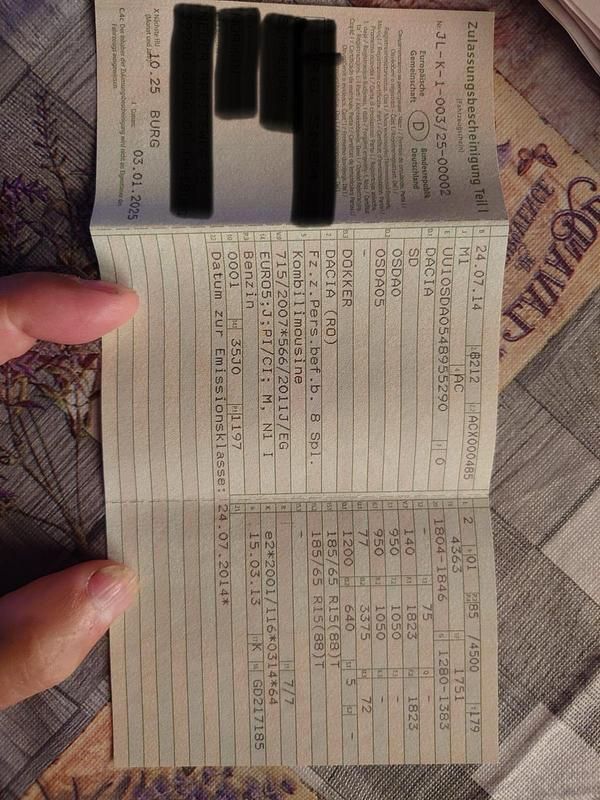 Zulassungsbescheinigung Teil I
(Fahrzeugschein)
Nr. JL-K-1-003/25-00002
Europäische Gemeinschaft
D
Bundesrepublik Deutschland
X Nächste HU
(Monat und
10.25 BURG
03.01.2025
24.07.14 8212 ACX000485
M1 AC
UU10SDA0548955290 0
DACIA
SD
0SDA0
0SDA05
-
DOKKER
DACIA (RO)
Fz.z.Pers.bef.b. 8 Spl.
Kombilimousine
715/2007*566/2011J/EG
EURO5;J;PI/CI; M, N1 I
Benzin
0001 35J0 1197
Datum zur Emissionsklasse: 24.07.2014*
2 01 85 /4500 179
4363 1751
1804-1846 1280-1383
- 75 -
140 1823 1823
950 1050 -
950 1050 -
77 3375 72
1200 640 5 -
185/65 R15(88)T
185/65 R15(88)T
-
7/7
e2*2001/116*0314*64
15.03.13 K GD217185